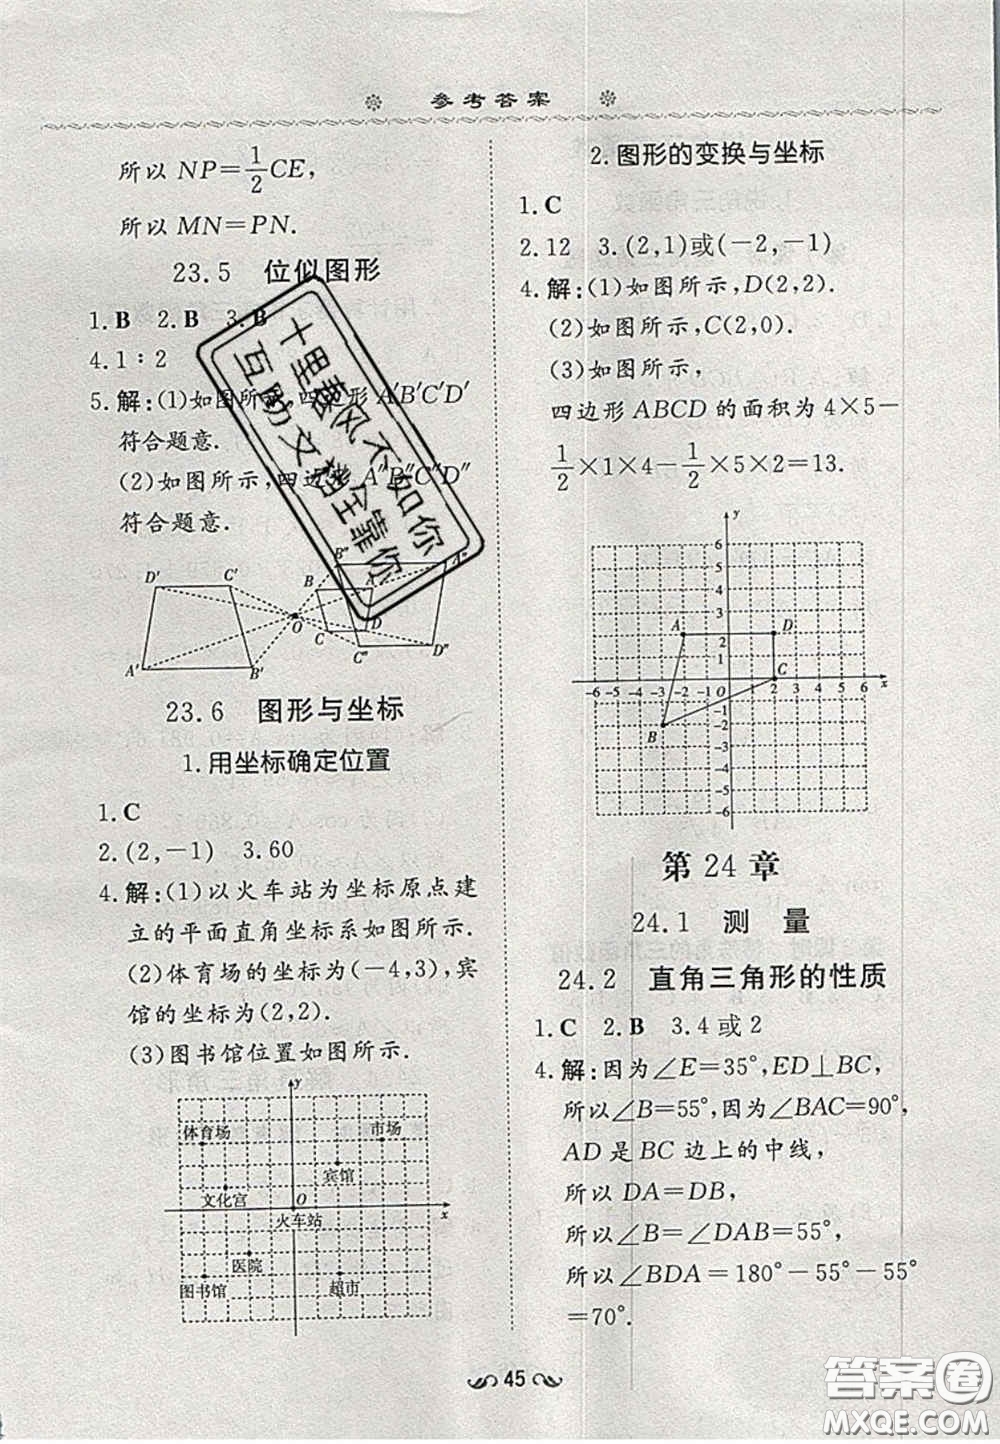 参考答案
所以 NP=1/2CE,
所以 MN=PN.
23.5 位似图形
1.B 2.B 3.B
4.1∶2
5.解:(1)如图所示,四边形 A′B′C′D′
符合题意.
(2)如图所示,四边形 A″B″C″D″
符合题意.
D′ C′ B B″ A A″
O
C D
A′ B′ C″ D″
23.6 图形与坐标
1.用坐标确定位置
1.C
2.(2,-1) 3.60
4.解:(1)以火车站为坐标原点建
立的平面直角坐标系如图所示.
(2)体育场的坐标为(-4,3),宾
馆的坐标为(2,2).
(3)图书馆位置如图所示.
y
体育场 市场
宾馆
文化宫 O
火车站 x
医院
图书馆 超市
2.图形的变换与坐标
1.C
2.12 3.(2,1)或(-2,-1)
4.解:(1)如图所示,D(2,2).
(2)如图所示,C(2,0).
(3)如图所示,
四边形 ABCD 的面积为 4×5-
1/2×1×4-1/2×5×2=13.
y
6
5
4
3
A 2 D
1 C
-6 -5 -4 -3 -2 -1 O 1 2 3 4 5 6 x
-1
B -2
-3
-4
-5
-6
第 24 章
24.1 测 量
24.2 直角三角形的性质
1.C 2.B 3.4 或 2
4.解:因为∠E=35°,ED⊥BC,
所以∠B=55°,因为∠BAC=90°,
AD 是 BC 边上的中线,
所以 DA=DB,
所以∠B=∠DAB=55°,
所以∠BDA=180°-55°-55°
=70°.
45
十里春风不如你
互助文档全靠你
答案圈
MXQE.COM